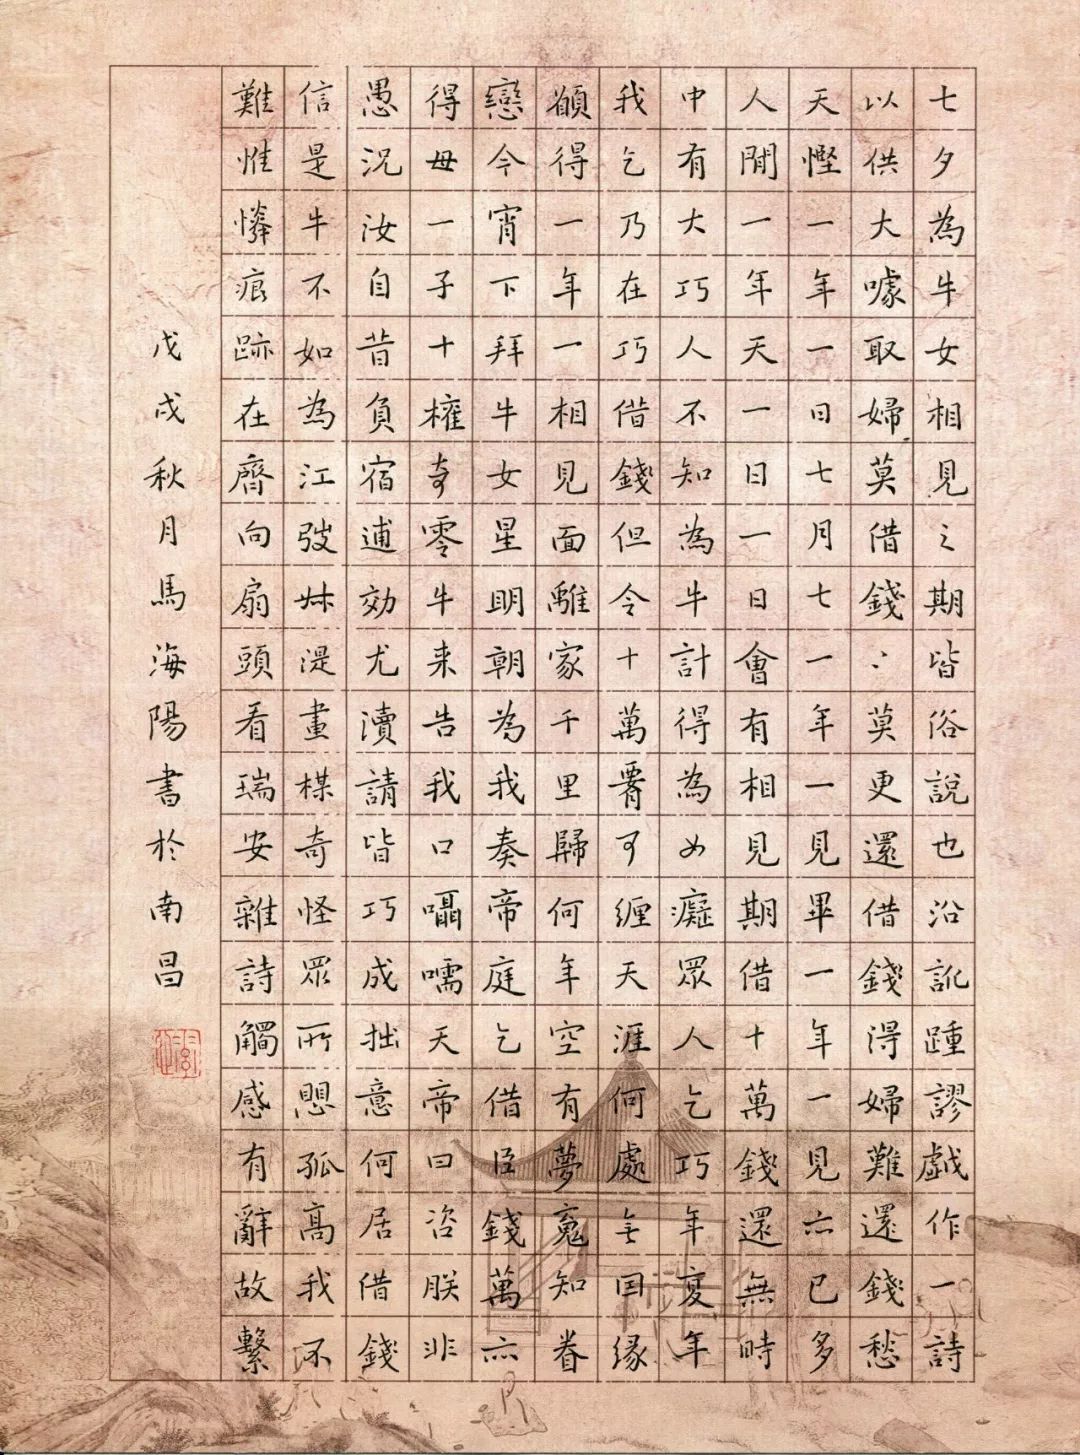 七夕為牛女相見之期皆俗說也沿訛踵謬戲作一詩
以供大噱取婦莫借錢〻莫更還借錢得婦難還錢愁
天慳一年一日七月七一年一見畢一年一見亦已多
人間一年天一日一日會有相見期借十萬錢還無時
中有大巧人不知為牛計得為女癡眾人乞巧年復年
我乞乃在巧借錢但令十萬胥可纏天涯何處無因緣
顧得一年一相見面離家千里歸何年空有夢魂知眷
戀今宵下拜牛女星明朝為我奏帝庭乞借臣錢萬亦
得毋一子十權奇零牛来告我口囁嚅天帝曰咨朕非
愚況汝自昔負宿逋効尤瀆請皆巧成拙意何居借錢
信是牛不如為江弢妹湜畫楳奇怪眾所愳孤高我不
難惟憐痕跡在齊向扇頭看瑞安雜詩觸感有辭故繫
戊戌秋月馬海陽書於南昌